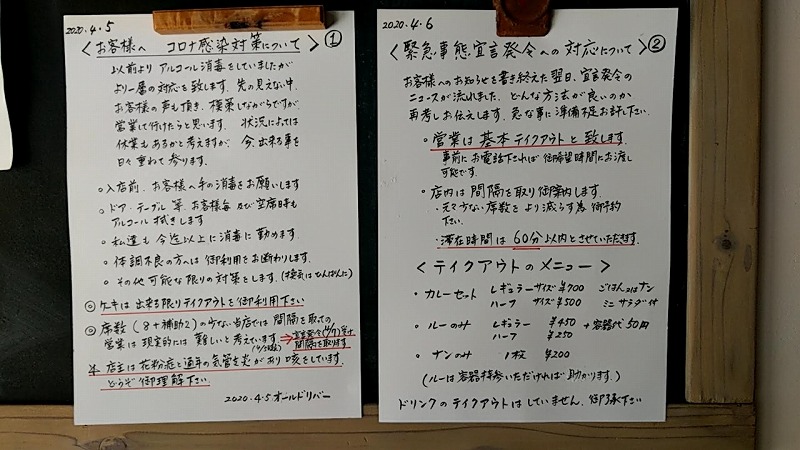 2020.4.5
<お客様へ コロナ感染対策について> ①
以前より アルコール消毒をしていましたが
より一層の対応を致します。先の見えない中、
お客様の声も頂き、模索しながらですが
営業して行けたらと思います。状況によっては
休業もあるかと考えますが、今、出来る事を
日々重ねて参ります。
○入店前、お客様へ手の消毒をお願いします
○ドア・テーブル等、お客様毎及び空席時も
アルコール拭きします
○私達も今迄以上に消毒に勤めます
○体調不良の方へは御利用をお断わりします。
○その他可能な限りの対策をします。(換気はひんぱんに)
◎ケーキは出来る限りテイクアウトを御利用下さい
◎席数(8+補助2)の少ない当店では間隔を取っての
営業は現実的には難しいと考えています
→宣言発令(4/7)受け
間隔を取ります
※店主は花粉症と通年の気管支炎があり咳をしています。
どうぞ御理解下さい
2020.4.5 オールドリバー
2020.4.6
<緊急事態宣言発令への対応について> ②
お客様へのお知らせを書き終えた翌日、宣言発令の
ニュースが流れました。どんな方法が良いのか
再考しお伝えします。急な事に準備不足お許し下さい。
○営業は基本テイクアウトと致します。
事前にお電話下されば御希望時間にお渡し
可能です。
○店内は間隔を取り御案内します。
・元々少ない席数をより減らす為御予約
下さい。
・滞在時間は60分以内とさせていただきます。
<テイクアウトのメニュー>
・カレーセット レギュラーサイズ ¥700 ごはん又はナン
ハーフ サイズ ¥500 ミニサラダ付
・ルーのみ レギュラー ¥450 +容器代50円
ハーフ ¥250
・ナンのみ 1枚 ¥200
(ルーは容器持参いただければ助かります。)
ドリンクのテイクアウトはしていません。御了承下さい